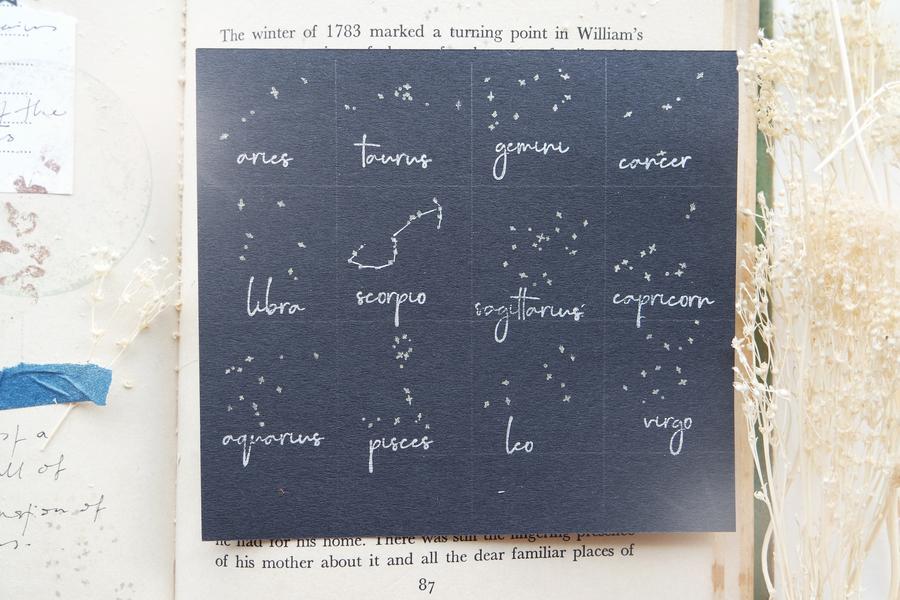 The winter of 1783 marked a turning point in William's
aries taurus gemini cancer
libra scorpio sagittarius capricorn
aquarius pisces leo virgo
he had for his home. There was still the lingering presence
of his mother about it and all the dear familiar places of
87
of the
of a
all of
of